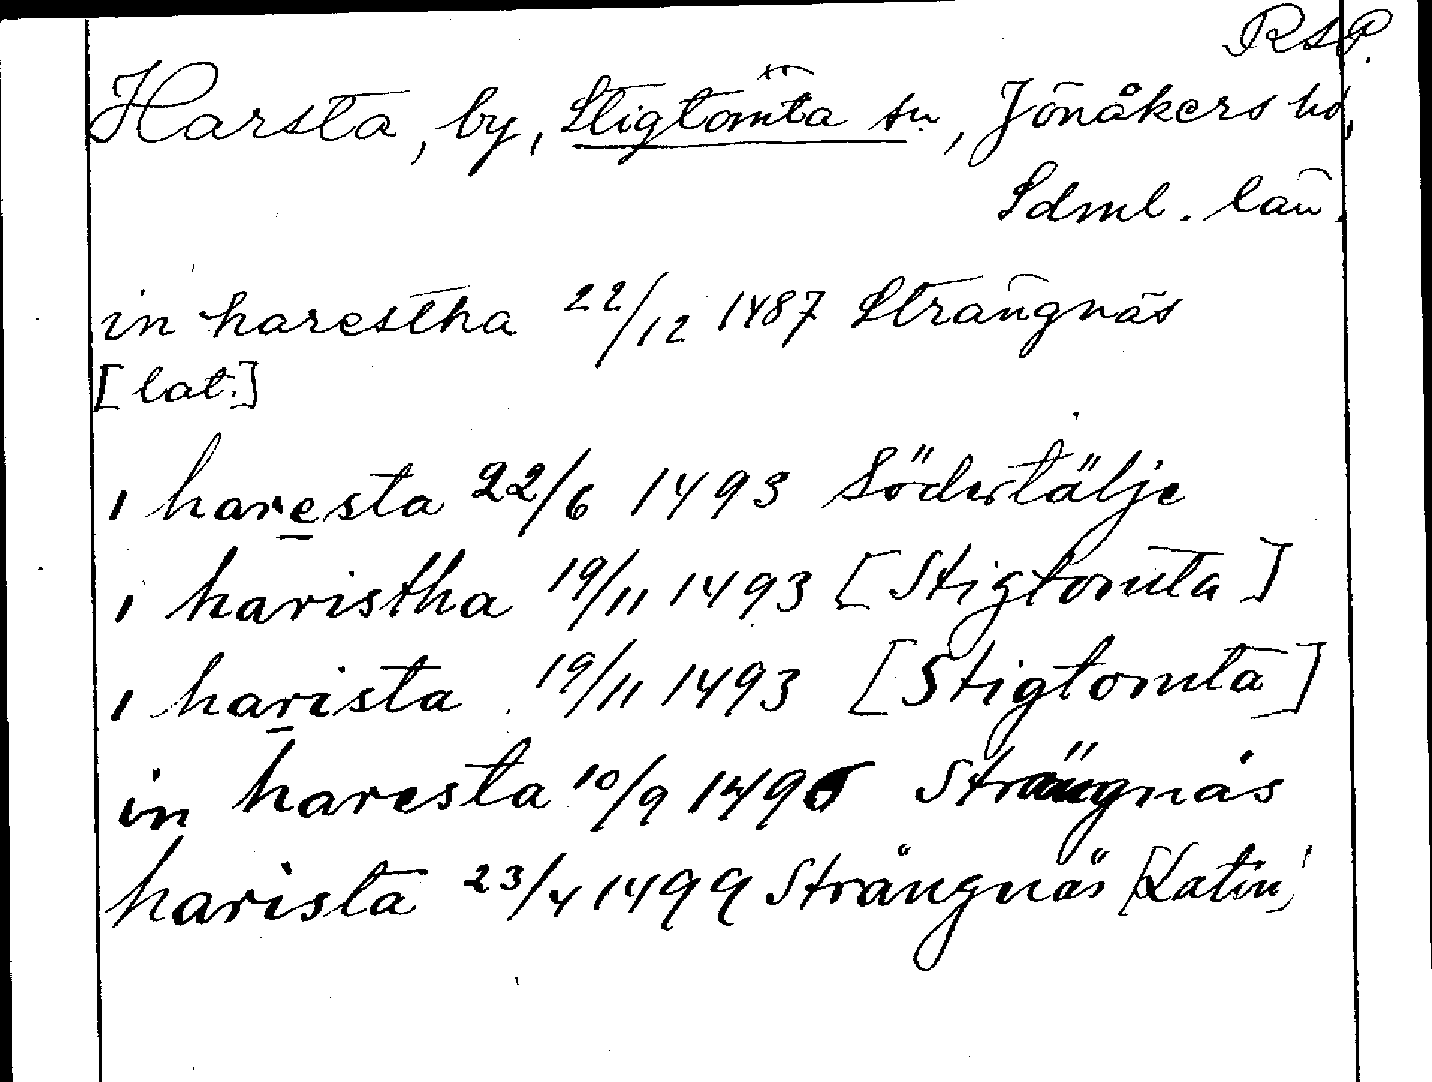 RAP.
Harsta, by, Stigtomta sn., Jönåkers hd,
Sdml. län.
in harestha 22/12 1487 Strängnäs
[lat.]
i haresta 22/6 1493 Södertälje
i haristha 19/11 1493 [Stigtomta]
i harista 19/11 1493 [Stigtomta]
in haresta 10/9 1496 Strängnäs
harista 23/4 1499 Strängnäs [Latin]